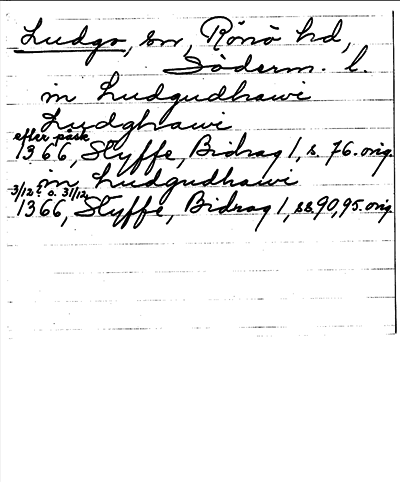 Ludgo, sn, Rönö hd,
Söderm. l.
in Ludgudhawi
Ludghawi
efter påsk
1366, Styffe, Bidrag 1, s. 76. orig.
in Ludgudhawi
3/12 ? o. 31/12
1366, Styffe, Bidrag 1, ss. 90, 95. orig.